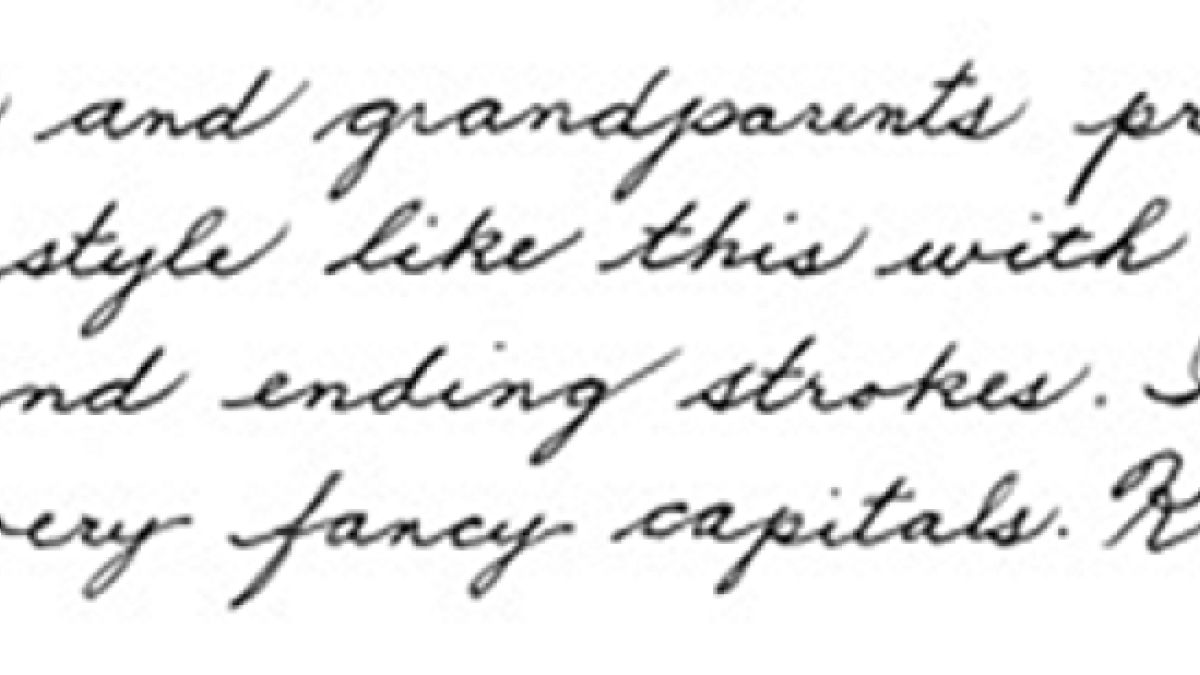 and grandparents pr
style like this with
nd ending strokes.
ery fancy capitals. R